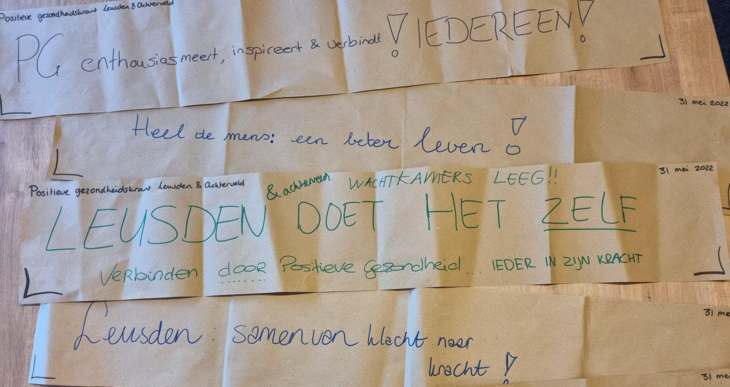 Positieve gezondheidskrant Leusden & Achterveld
PG enthousiasmeert, inspireert & verbindt! IEDEREEN!
31 mei 2022
Heel de mens: een beter leven!
31 mei 2022
Positieve gezondheidskrant Leusden & Achterveld
& achterveld WACHTKAMERS LEEG!!
LEUSDEN DOET HET ZELF
Verbinden door Positieve Gezondheid... IEDER IN ZIJN KRACHT
31 mei
Leusden: samen van klacht naar
kracht!
31 mei